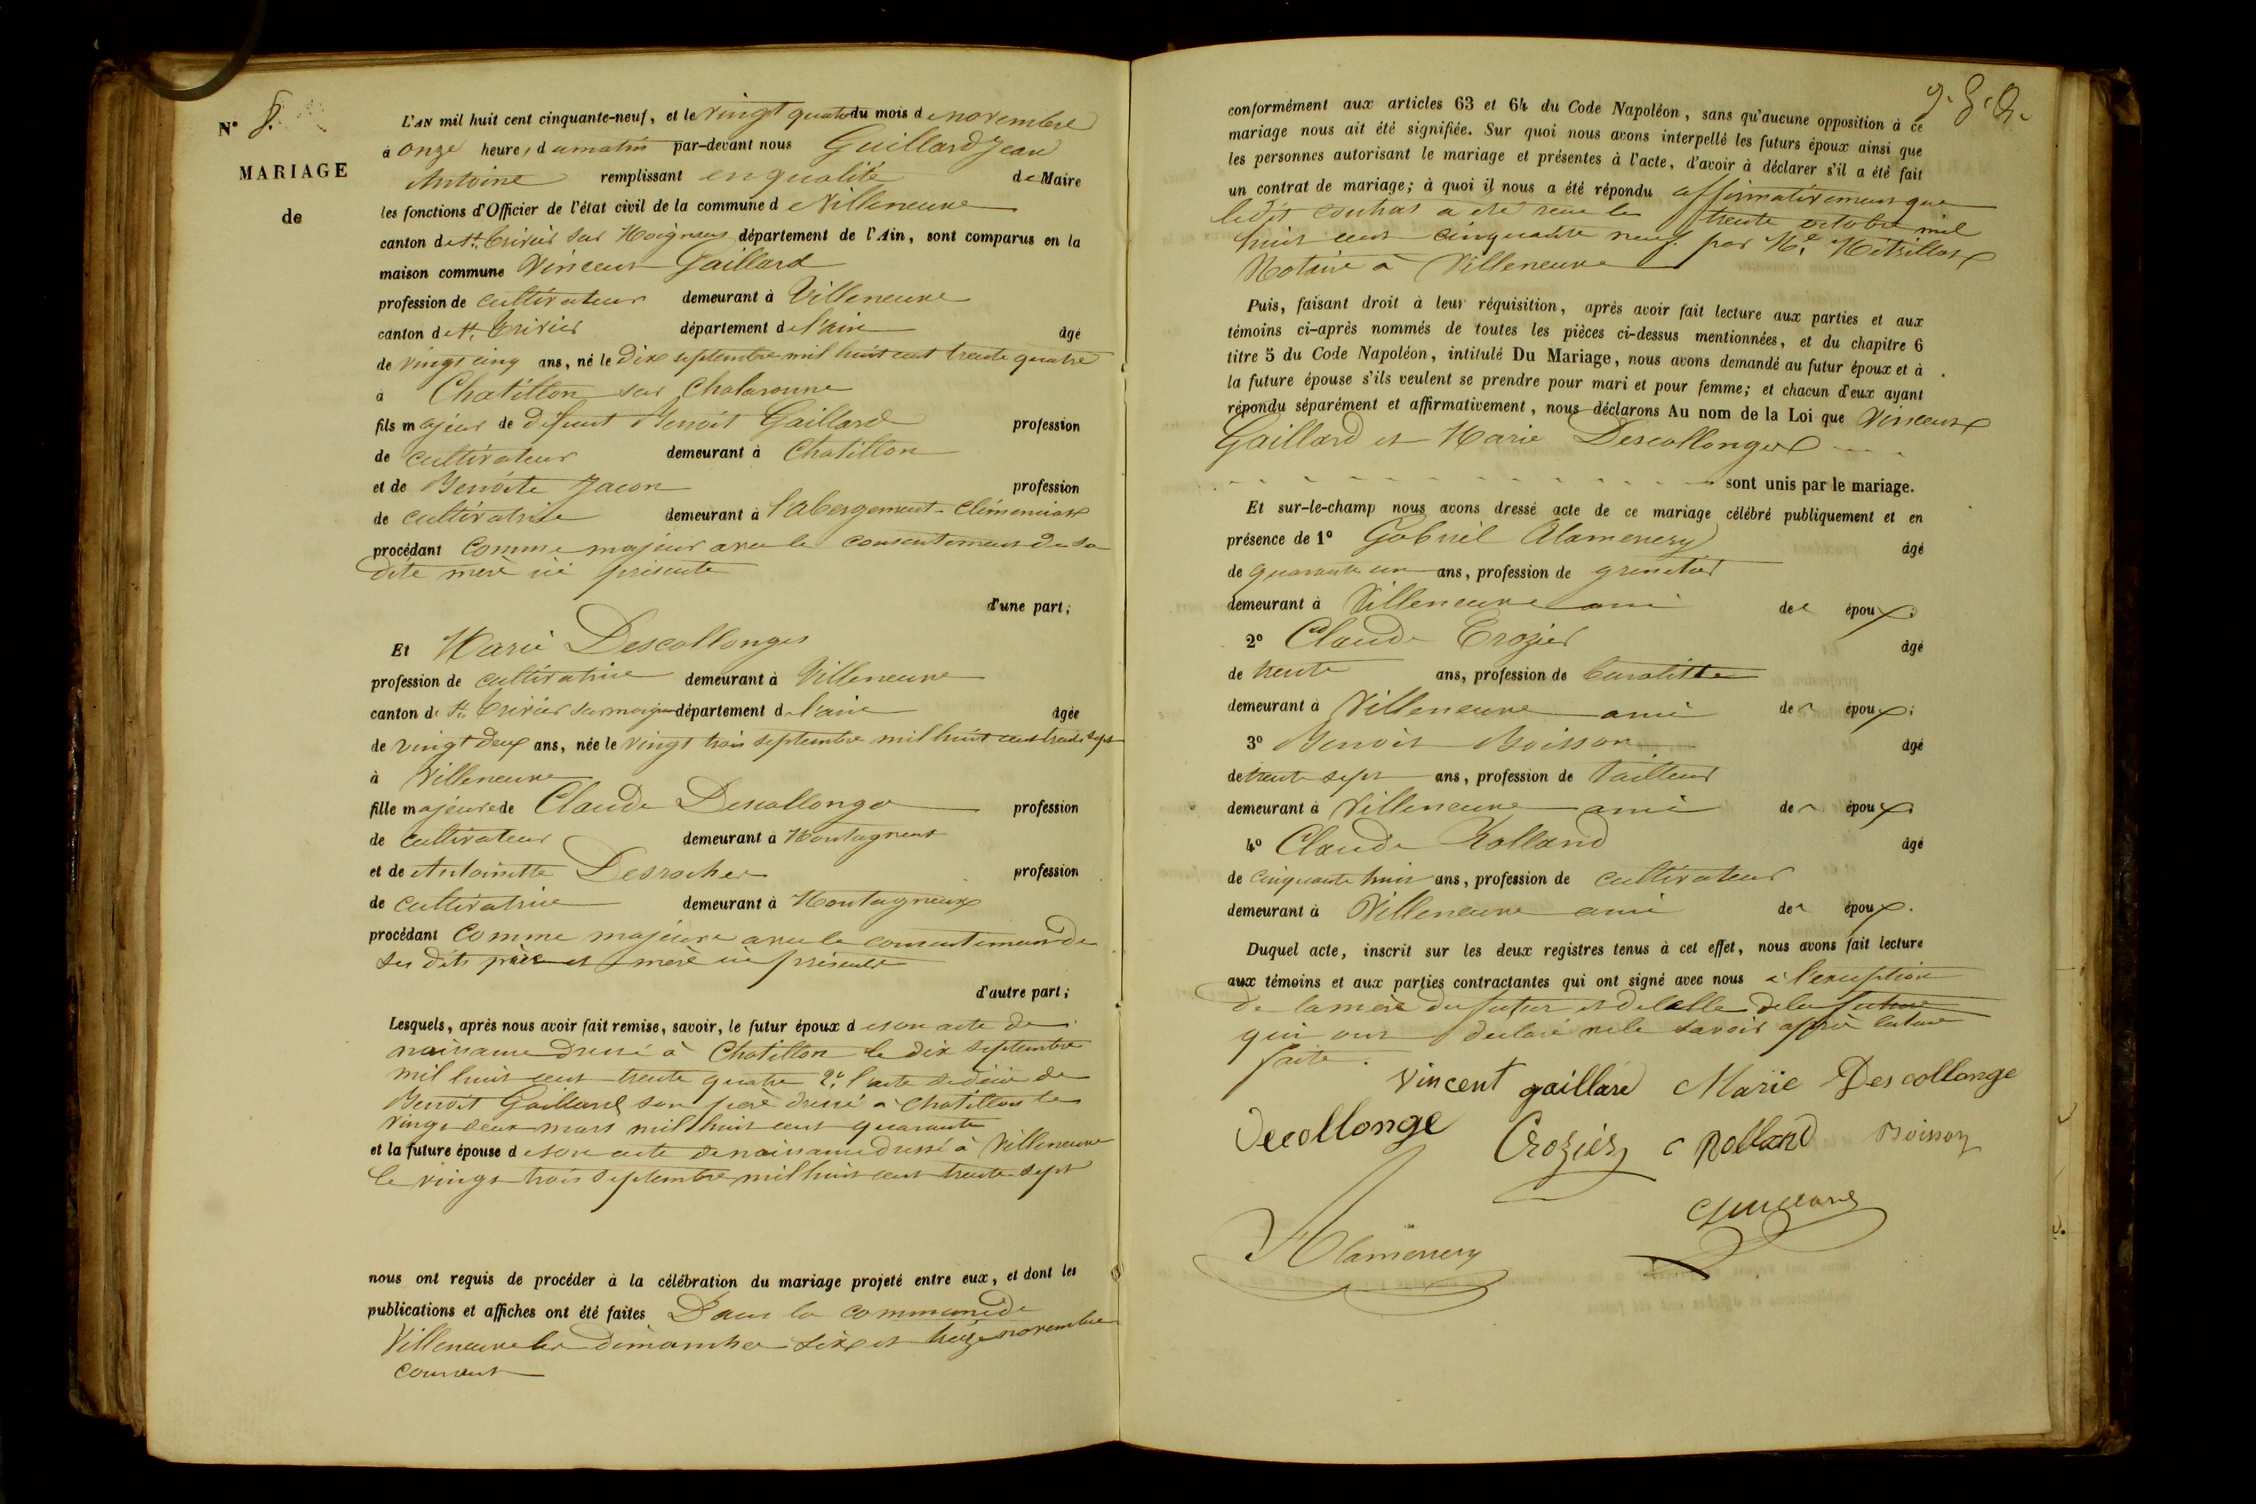 N° 8.
MARIAGE
de
L'AN mil huit cent cinquante-neuf, et le vingt quatre du mois de novembre
à onze heures du matin par-devant nous Guillard Jean
Antoine remplissant en qualité de Maire
les fonctions d'Officier de l'état civil de la commune de Villeneuve
canton de St. Trivier sur Moignans département de l'Ain, sont comparus en la
maison commune Vincent Gaillard
profession de cultivateur demeurant à Villeneuve
canton de St. Trivier département de l'ain âgé
de vingt cinq ans, né le dix septembre mil huit cent trente quatre
à Chatillon sur Chalaronne
fils majeur de défunt Benoit Gaillard profession
de cultivateur demeurant à Chatillon
et de Benoite Jacon profession
de cultivatrice demeurant à l'abergement-Clémenciat
procédant comme majeur avec le consentement de sa
dite mère ici présente
d'une part;
Et Marie Descollonges
profession de cultivatrice demeurant à Villeneuve
canton de St. Trivier sur moignans département de l'ain âgée
de vingt deux ans, née le vingt trois septembre mil huit cent trente sept
à Villeneuve
fille majeure de Claude Descollonge profession
de cultivateur demeurant à Montagneux
et de Antoinette Desroches profession
de cultivatrice demeurant à Montagneux
procédant comme majeure avec le consentement de
ses dits père et mère ici présents
d'autre part;
Lesquels, après nous avoir fait remise, savoir, le futur époux de son acte de
naissance dressé à Chatillon le dix septembre
mil huit cent trente quatre 2° l'acte de décès de
Benoit Gaillard son père dressé à Chatillon le
vingt deux mars mil huit cent quarante
et la future épouse de son acte de naissance dressé à Villeneuve
le vingt trois septembre mil huit cent trente sept
nous ont requis de procéder à la célébration du mariage projeté entre eux, et dont les
publications et affiches ont été faites Dans la commune de
Villeneuve les dimanches six et treize novembre
courant
conformément aux articles 63 et 64 du Code Napoléon, sans qu'aucune opposition à ce
mariage nous ait été signifiée. Sur quoi nous avons interpellé les futurs époux ainsi que
les personnes autorisant le mariage et présentes à l'acte, d'avoir à déclarer s'il a été fait
un contrat de mariage; à quoi il nous a été répondu affirmativement que
ledit contrat a été reçu le trente octobre mil
huit cent cinquante neuf par Me. Métrillot
Notaire à Villeneuve
Puis, faisant droit à leur réquisition, après avoir fait lecture aux parties et aux
témoins ci-après nommés de toutes les pièces ci-dessus mentionnées, et du chapitre 6
titre 5 du Code Napoléon, intitulé Du Mariage, nous avons demandé au futur époux et à
la future épouse s'ils veulent se prendre pour mari et pour femme; et chacun d'eux ayant
répondu séparément et affirmativement, nous déclarons Au nom de la Loi que Vincent
Gaillard et Marie Descollonges
sont unis par le mariage.
Et sur-le-champ nous avons dressé acte de ce mariage célébré publiquement et en
présence de 1° Gabriel Alamercery âgé
de quarante un ans, profession de grenetier
demeurant à Villeneuve ami des époux;
2° Claude Crozier âgé
de trente ans, profession de
demeurant à Villeneuve ami des époux;
3° Benoit Boisson âgé
de trente sept ans, profession de tailleur
demeurant à Villeneuve ami des époux
4° Claude Rolland âgé
de cinquante huit ans, profession de cultivateur
demeurant à Villeneuve ami des époux.
Duquel acte, inscrit sur les deux registres tenus à cet effet, nous avons fait lecture
aux témoins et aux parties contractantes qui ont signé avec nous à l'exception
de la mère du futur et de celle de la future
qui ont déclaré ne le savoir après lecture
faite.
Vincent gaillard Marie Descollonge
Decollonge Crozier C Rolland Boisson
Guillard
Alamercery